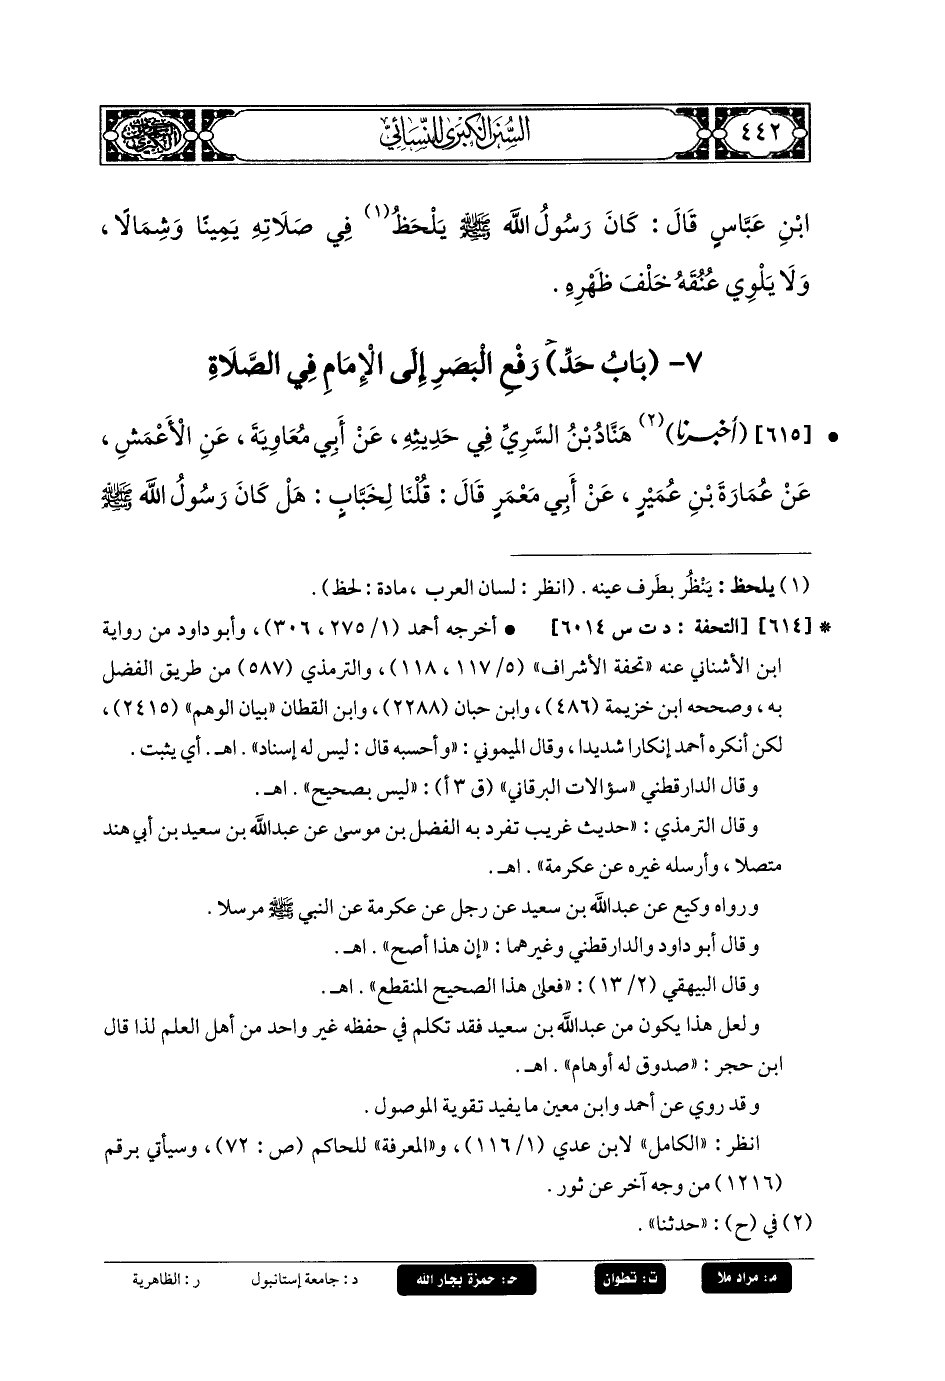 ٤٤٢
السُّنَنُ الْكُبْرَى لِلنَّسَائِيِّ
ابْنِ عَبَّاسٍ قَالَ : كَانَ رَسُولُ اللَّه ﷺ يَلْحَظُ(١) فِي صَلَاتِهِ يَمِينًا وَشِمَالًا ،
وَلَا يَلْوِي عُنُقَهُ خَلْفَ ظَهْرِهِ .
٧- (بَابُ حَدِّ) رَفْعِ الْبَصَرِ إِلَى الْإِمَامِ فِي الصَّلَاةِ
• [٦١٥] (أخبرنا)(٢) هَنَّادُ بْنُ السَّرِيِّ فِي حَدِيثِهِ ، عَنْ أَبِي مُعَاوِيَةَ ، عَنِ الْأَعْمَشِ ،
عَنْ عُمَارَةَ بْنِ عُمَيْرٍ ، عَنْ أَبِي مَعْمَرٍ قَالَ : قُلْنَا لِخَبَّابٍ : هَلْ كَانَ رَسُولُ اللَّه ﷺ
(١) يلحظ : يَنْظُر بطَرف عينه . (انظر : لسان العرب ، مادة : لحظ) .
* [٦١٤] [التحفة : د ت س ٦٠١٤] • أخرجه أحمد (١/ ٢٧٥ ، ٣٠٦) ، وأبو داود من رواية
ابن الأشناني عنه «تحفة الأشراف» (٥/ ١١٧ ، ١١٨) ، والترمذي (٥٨٧) من طريق الفضل
به ، وصححه ابن خزيمة (٤٨٦) ، وابن حبان (٢٢٨٨) ، وابن القطان «بيان الوهم» (٢٤١٥) ،
لكن أنكره أحمد إنكارا شديدا ، وقال الميموني : «وأحسبه قال : ليس له إسناد» . اهـ . أي يثبت .
وقال الدارقطني «سؤالات البرقاني» (ق ٣ أ) : «ليس بصحيح» . اهـ .
وقال الترمذي : «حديث غريب تفرد به الفضل بن موسى عن عبدالله بن سعيد بن أبي هند
متصلا ، وأرسله غيره عن عكرمة» . اهـ .
ورواه وكيع عن عبدالله بن سعيد عن رجل عن عكرمة عن النبي ﷺ مرسلا .
وقال أبو داود والدارقطني وغيرهما : «إن هذا أصح» . اهـ .
وقال البيهقي (٢/ ١٣) : «فعلى هذا الصحيح المنقطع» . اهـ .
ولعل هذا يكون من عبدالله بن سعيد فقد تكلم في حفظه غير واحد من أهل العلم لذا قال
ابن حجر : «صدوق له أوهام» . اهـ .
وقد روي عن أحمد وابن معين ما يفيد تقوية الموصول .
انظر : «الكامل» لابن عدي (١/ ١١٦) ، و«المعرفة» للحاكم (ص : ٧٢) ، وسيأتي برقم
(١٢١٦) من وجه آخر عن ثور .
(٢) في (ح) : «حدثنا» .
م : مراد ملا ت : تطوان حـ : حمزة بجار الله د : جامعة إستانبول ر : الظاهرية